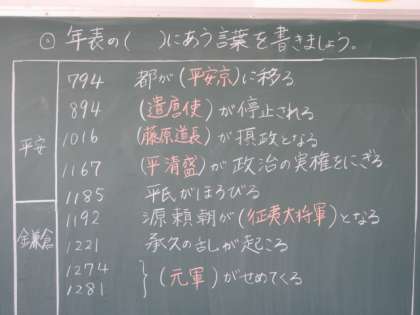 ◎ 年表の( )にあう言葉を書きましょう。
平安
794 都が(平安京)に移る
894 (遣唐使)が停止される
1016 (藤原道長)が摂政となる
1167 (平清盛)が政治の実権をにぎる
1185 平氏がほろびる
鎌倉
1192 源頼朝が(征夷大将軍)となる
1221 承久の乱が起こる
1274
1281 } (元軍)がせめてくる